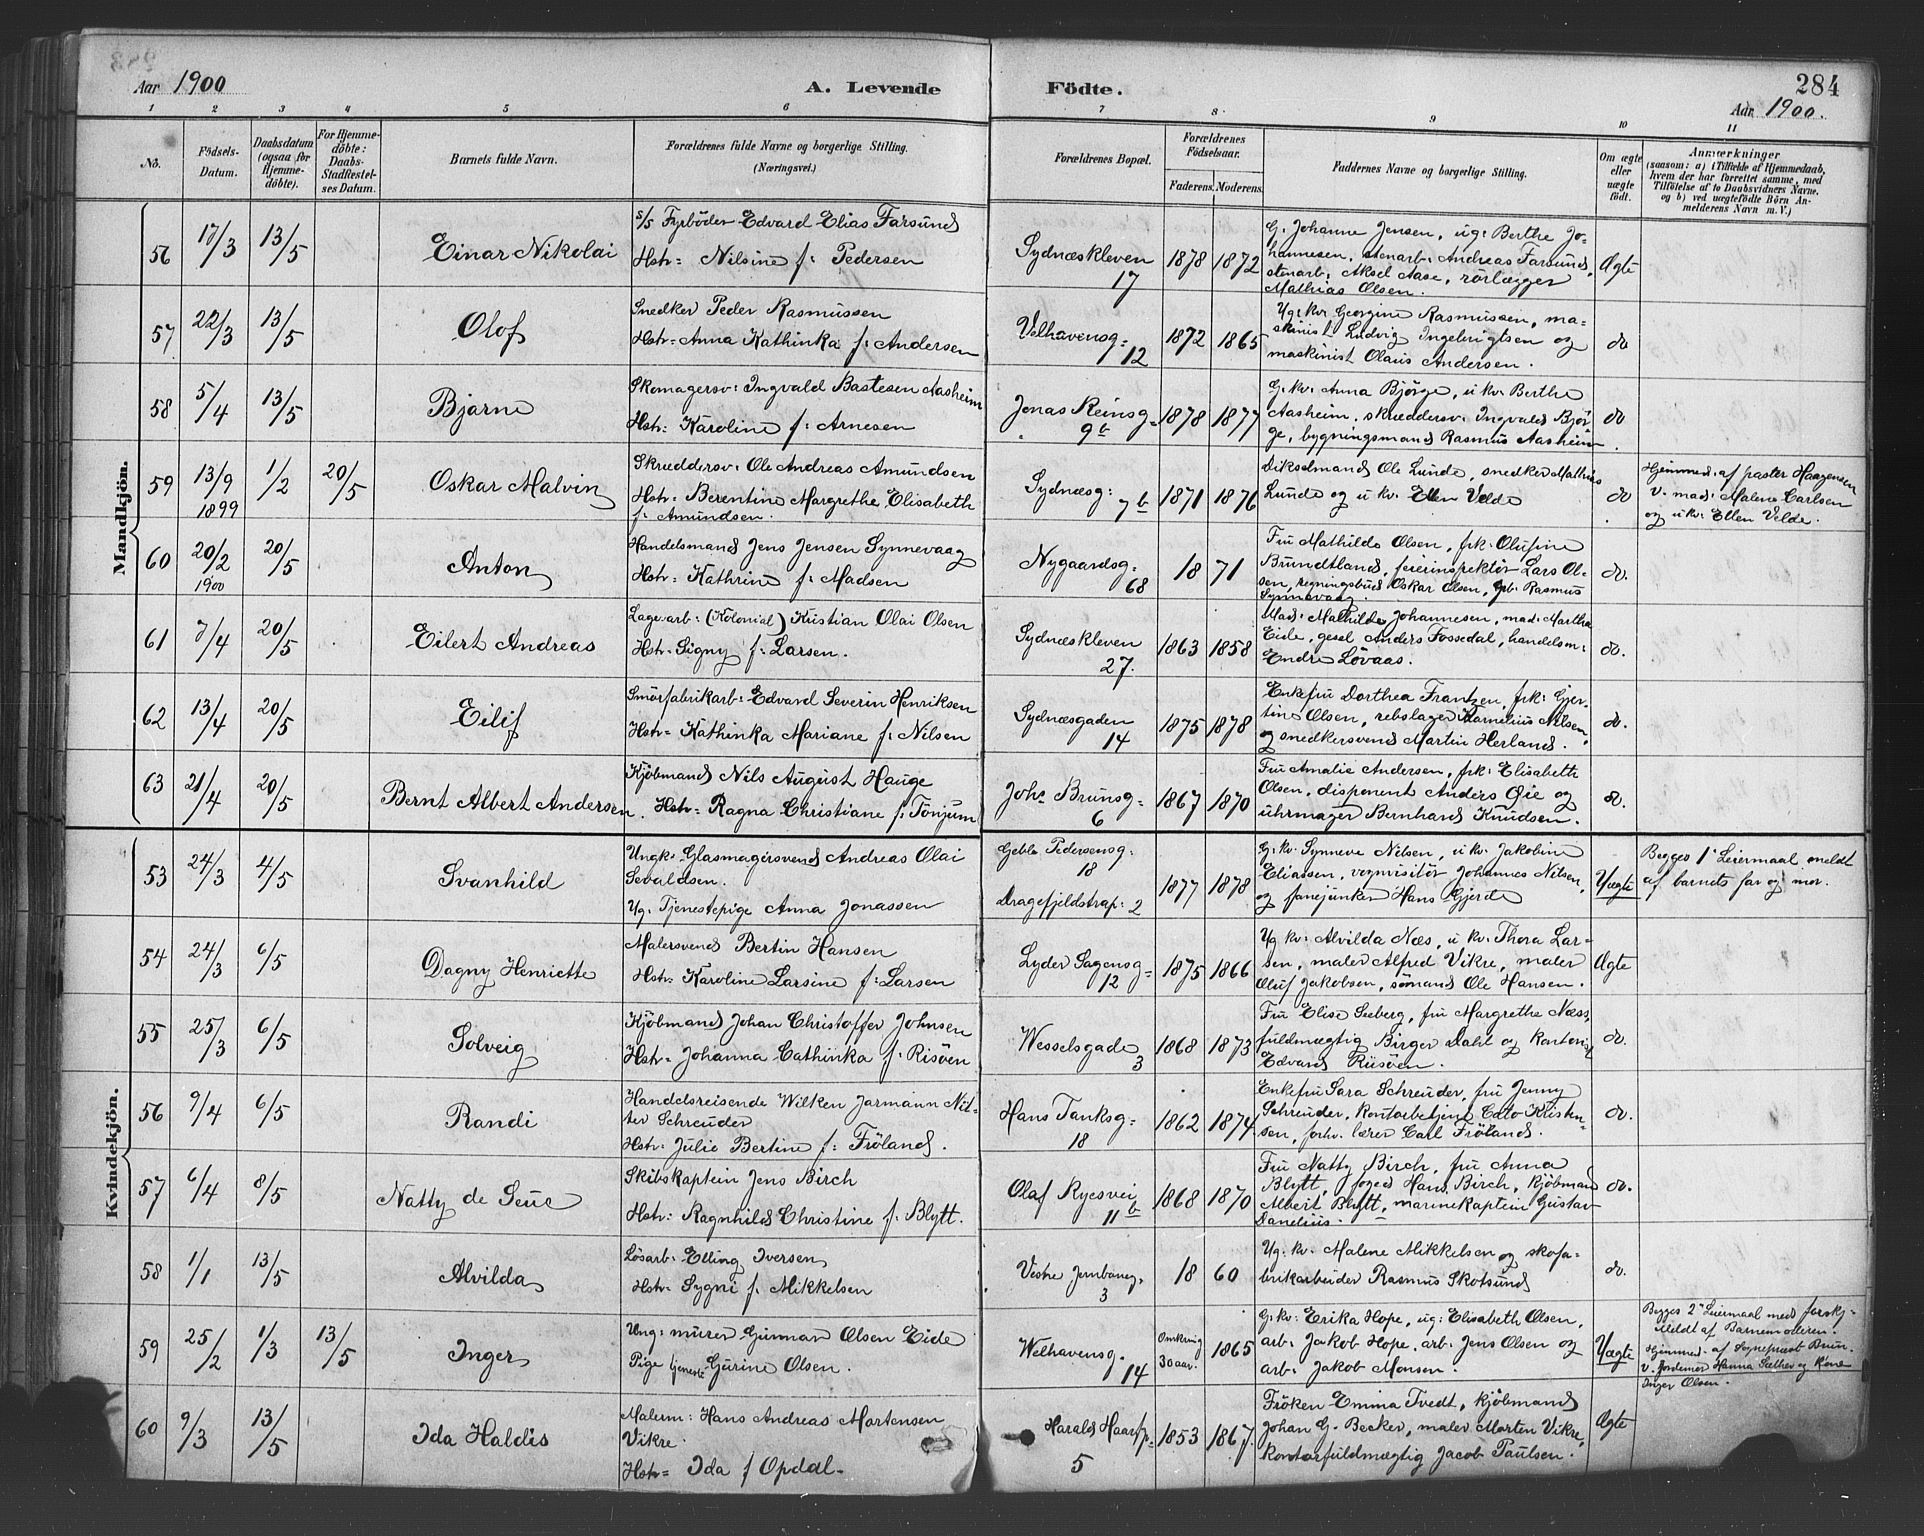 Aar 1900
A. Levende
Fødte.
284
Aar 1900.
1 2 3 4 5 6 7 8 9 10 11
No.
Fødsels-Datum.
Daabsdatum (ogsaa for Hjemmedøbte).
For Hjemmedøbte: Daabs-Stadfæstelses Datum.
Barnets fulde Navn.
Forældrenes fulde Navne og borgerlige Stilling. (Næringsvei.)
Forældrenes Bopæl.
Forældrenes Fødselsaar.
Faderens. Moderens.
Faddernes Navne og borgerlige Stilling.
Om ægte eller uægte født.
Anmærkninger
(saasom: a) i Tilfælde af Hjemmedaab, hvem der har forrettet samme, med Tilføielse af to Daabsvidners Navne, og b) ved uægtefødte Børn Anmelderens Navn m. V.)
Mandkjøn.
56 17/3 13/5 Einar Nikolai
s/s Fyrbøder Edvard Elias Farsund
Hstr: Nilsine f: Pedersen
Sydnæskleven 17
1878 1872
G. Johanne Jensen, ug: Berthe Jo-
hannesen, stenarb: Andreas Farsund,
stenarb: Aksel Aase, rørlægger
Mathias Olsen.
Ægte
57 22/3 13/5 Olof
Snedker Peder Rasmussen
Hstr: Anna Kathinka f: Andersen
Velhavensg: 12
1872 1865
Ug: kv Georgine Rasmussen, ma-
skinist Ludvig Ingebrigtsen og
maskinist Olaus Andersen.
do
58 5/4 13/5 Bjarne
Skomagersv: Ingvald Bastesen Aasheim
Hstr: Karoline f: Arnesen
Jonas Reinsg: 9b
1878 1877
G. kv: Anna Bjørge, u kv: Berthe
Aasheim, skræddersv: Ingvald Bjør-
ge, bygningsmand Rasmus Aasheim
do
59 13/9 1899 1/2 20/5 Oskar Malvin
Skræddersv: Ole Andreas Amundsen
Hstr: Berentine Margrethe Elisabeth
f: Amundsen.
Sydnæsg: 7b
1871 1876
Dikselmand Ole Lunde, snedker Mathias
Lunde og u kv: Ellen Velde
do
Hjemmed: af pastor Haagensen
v. mad: Malene Carlsen
og u kv: Ellen Velde.
60 20/2 1900 20/5 Anton
Handelsmand Jens Jensen Synnevaag
Hstr: Kathrine f: Madsen
Nygaardsg: 68
18 71
Fru Mathilde Olsen, frk: Olufine
Brundtland, feierinspektør Lars Ol-
sen, regningsbud Oskar Olsen, gb: Rasmus
Synnevaag.
do.
61 7/4 20/5 Eilert Andreas
Lagerarb: (Kolonial) Kristian Olai Olsen
Hstr: Signy f: Larsen.
Sydnæskleven 27.
1863 1858
Mad: Mathilde Johannesen, mad: Martha
Eide, gesel Anders Fossedal, handelsm:
Endre Løvaas.
do.
62 13/4 20/5 Eilif
Smørfabrikarb: Edvard Severin Henriksen
Hstr: Kathinka Mariane f: Nilsen
Sydnæsgaden 14
1875 1878
Enkefru Dorthea Frantzen, frk: Gjer-
tine Olsen, rebslager Kornelius Nilsen,
og snedkersvend Martin Herland.
do.
63 21/4 20/5 Bernt Albert Andersen
Kjøbmand Nils August Hauge
Hstr: Ragna Christiane f: Tønjum
Johs Brunsg: 6
1867 1870
Fru Amalie Andersen, frk: Elisabeth
Olsen, disponent Anders Øie og
uhrmager Bernhard Knudsen.
do.
Kvindekjøn.
53 24/3 4/5 Svanhild
Ungk: Glasmagersvend Andreas Olai
Sevaldsen.
Ug: Tjenestepige Anna Jonassen
Geble Pedersensg: 18
Dragefjeldstrap: 2
1877 1878
G: kv: Synneve Nilsen, u kv: Jakobine
Eliassen, vognvisitør Johannes Nilsen,
og fanejunker Hans Gjerde
Uægte
Begges 1s Leiermaal meldt
af barnets far og mor.
54 24/3 6/5 Dagny Henriette
Malersvend Bertin Hansen
Hstr: Karoline Larsine f: Larsen
Lyder Sagensg: 12
1875 1866
Ug kv: Alvilda Næs, u kv: Thora Lar-
sen, maler Alfred Vikre, maler
Oluf Jakobsen, sømand Ole Hansen.
Ægte
55 25/3 6/5 Solveig
Kjøbmand Johan Christoffer Johnsen
Hstr: Johanna Cathinka f: Risøen
Wesselsgade 3
1868 1873
Fru Elise Seeberg, fru Margrethe Næss,
fuldmægtig Birger Dahl og kontorist
Edvard Riisøen.
do.
56 9/4 6/5 Randi
Handelsreisende Wilken Jarmann Nil-
ter Schreuder
Hstr: Julie Bertine f: Frøland.
Hans Tanksg: 18
1862 1874
Enkefru Sara Schreuder, fru Jenny
Schreuder, kontorbetjent Cato Kristen-
sen, forhv. lærer Carl Frøland.
do.
57 6/4 8/5 Natty de Seue
Skibskaptein Jens Birch
Hstr: Ragnhild Christine f: Blytt.
Olaf Ryesvei 11b
1868 1870
Fru Natty Birch, fru Anna
Blytt, foged Hans Birch, kjøbmand
Albert Blytt, marinekaptein Gustav
Danelius.
do.
58 1/1 13/5 Alvilda
Løsarb: Elling Iversen
Hstr: Sygni f. Mikkelsen
Vestre Jernbaneg. 3
18 60
Ug. kv: Malene Mikkelsen og skofa-
brikarbeider Rasmus Skotsund
do.
59 25/2 1/3 13/5 Inger
Ung: murer Gunnar Olsen Eide
Pige tjeneste Gurine Olsen.
Welhavensg. 14
Omkring 30 aar. 1865
G: kv: Erika Hope, ug: Elisabeth Olsen,
arb: Jakob Hope, arb: Jens Olsen og
arb: Jakob Monsen.
Uægte
Begges 2s Leiermaal med forskj:
Meldt af Barnemoderen.
Hjemmed. af Sogneprest Brun.
v. Jordemor Hanna Sælhev og Kone
Inger Olsen.
60 9/3 13/5 Ida Haldis
Malerm: Hans Andreas Mortensen
Vikre.
Hstr: Ida f Opdal.
Harald Haarfp: 5
1853 1867
Frøken Emma Tvedt, kjøbmand
Johan G. Becker, maler Morten Vikre,
kontorfuldmægtig Jacob Paulsen.
Ægte